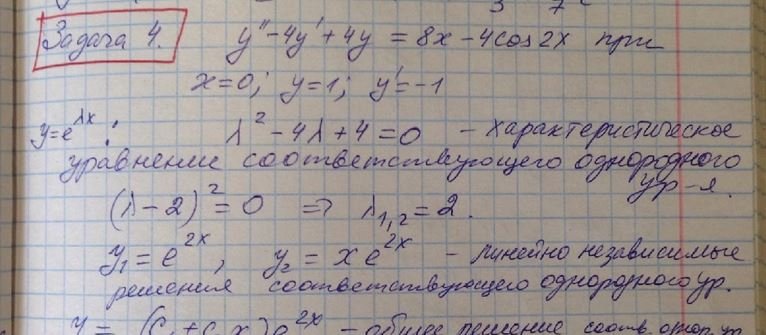 Задача 4. y'' - 4y' + 4y = 8x - 4cos2x при
x=0; y=1; y'=-1
y=e^{λx}: λ² - 4λ + 4 = 0 - характеристическое
уравнение соответствующего однородного
ур-я.
(λ-2)² = 0 ⇒ λ_{1,2} = 2.
y₁ = e^{2x}, y₂ = xe^{2x} - линейно независимые
решения соответствующего однородного ур.
y = (C₁+C₂x)e^{2x} - общее решение соотв. однор. ур